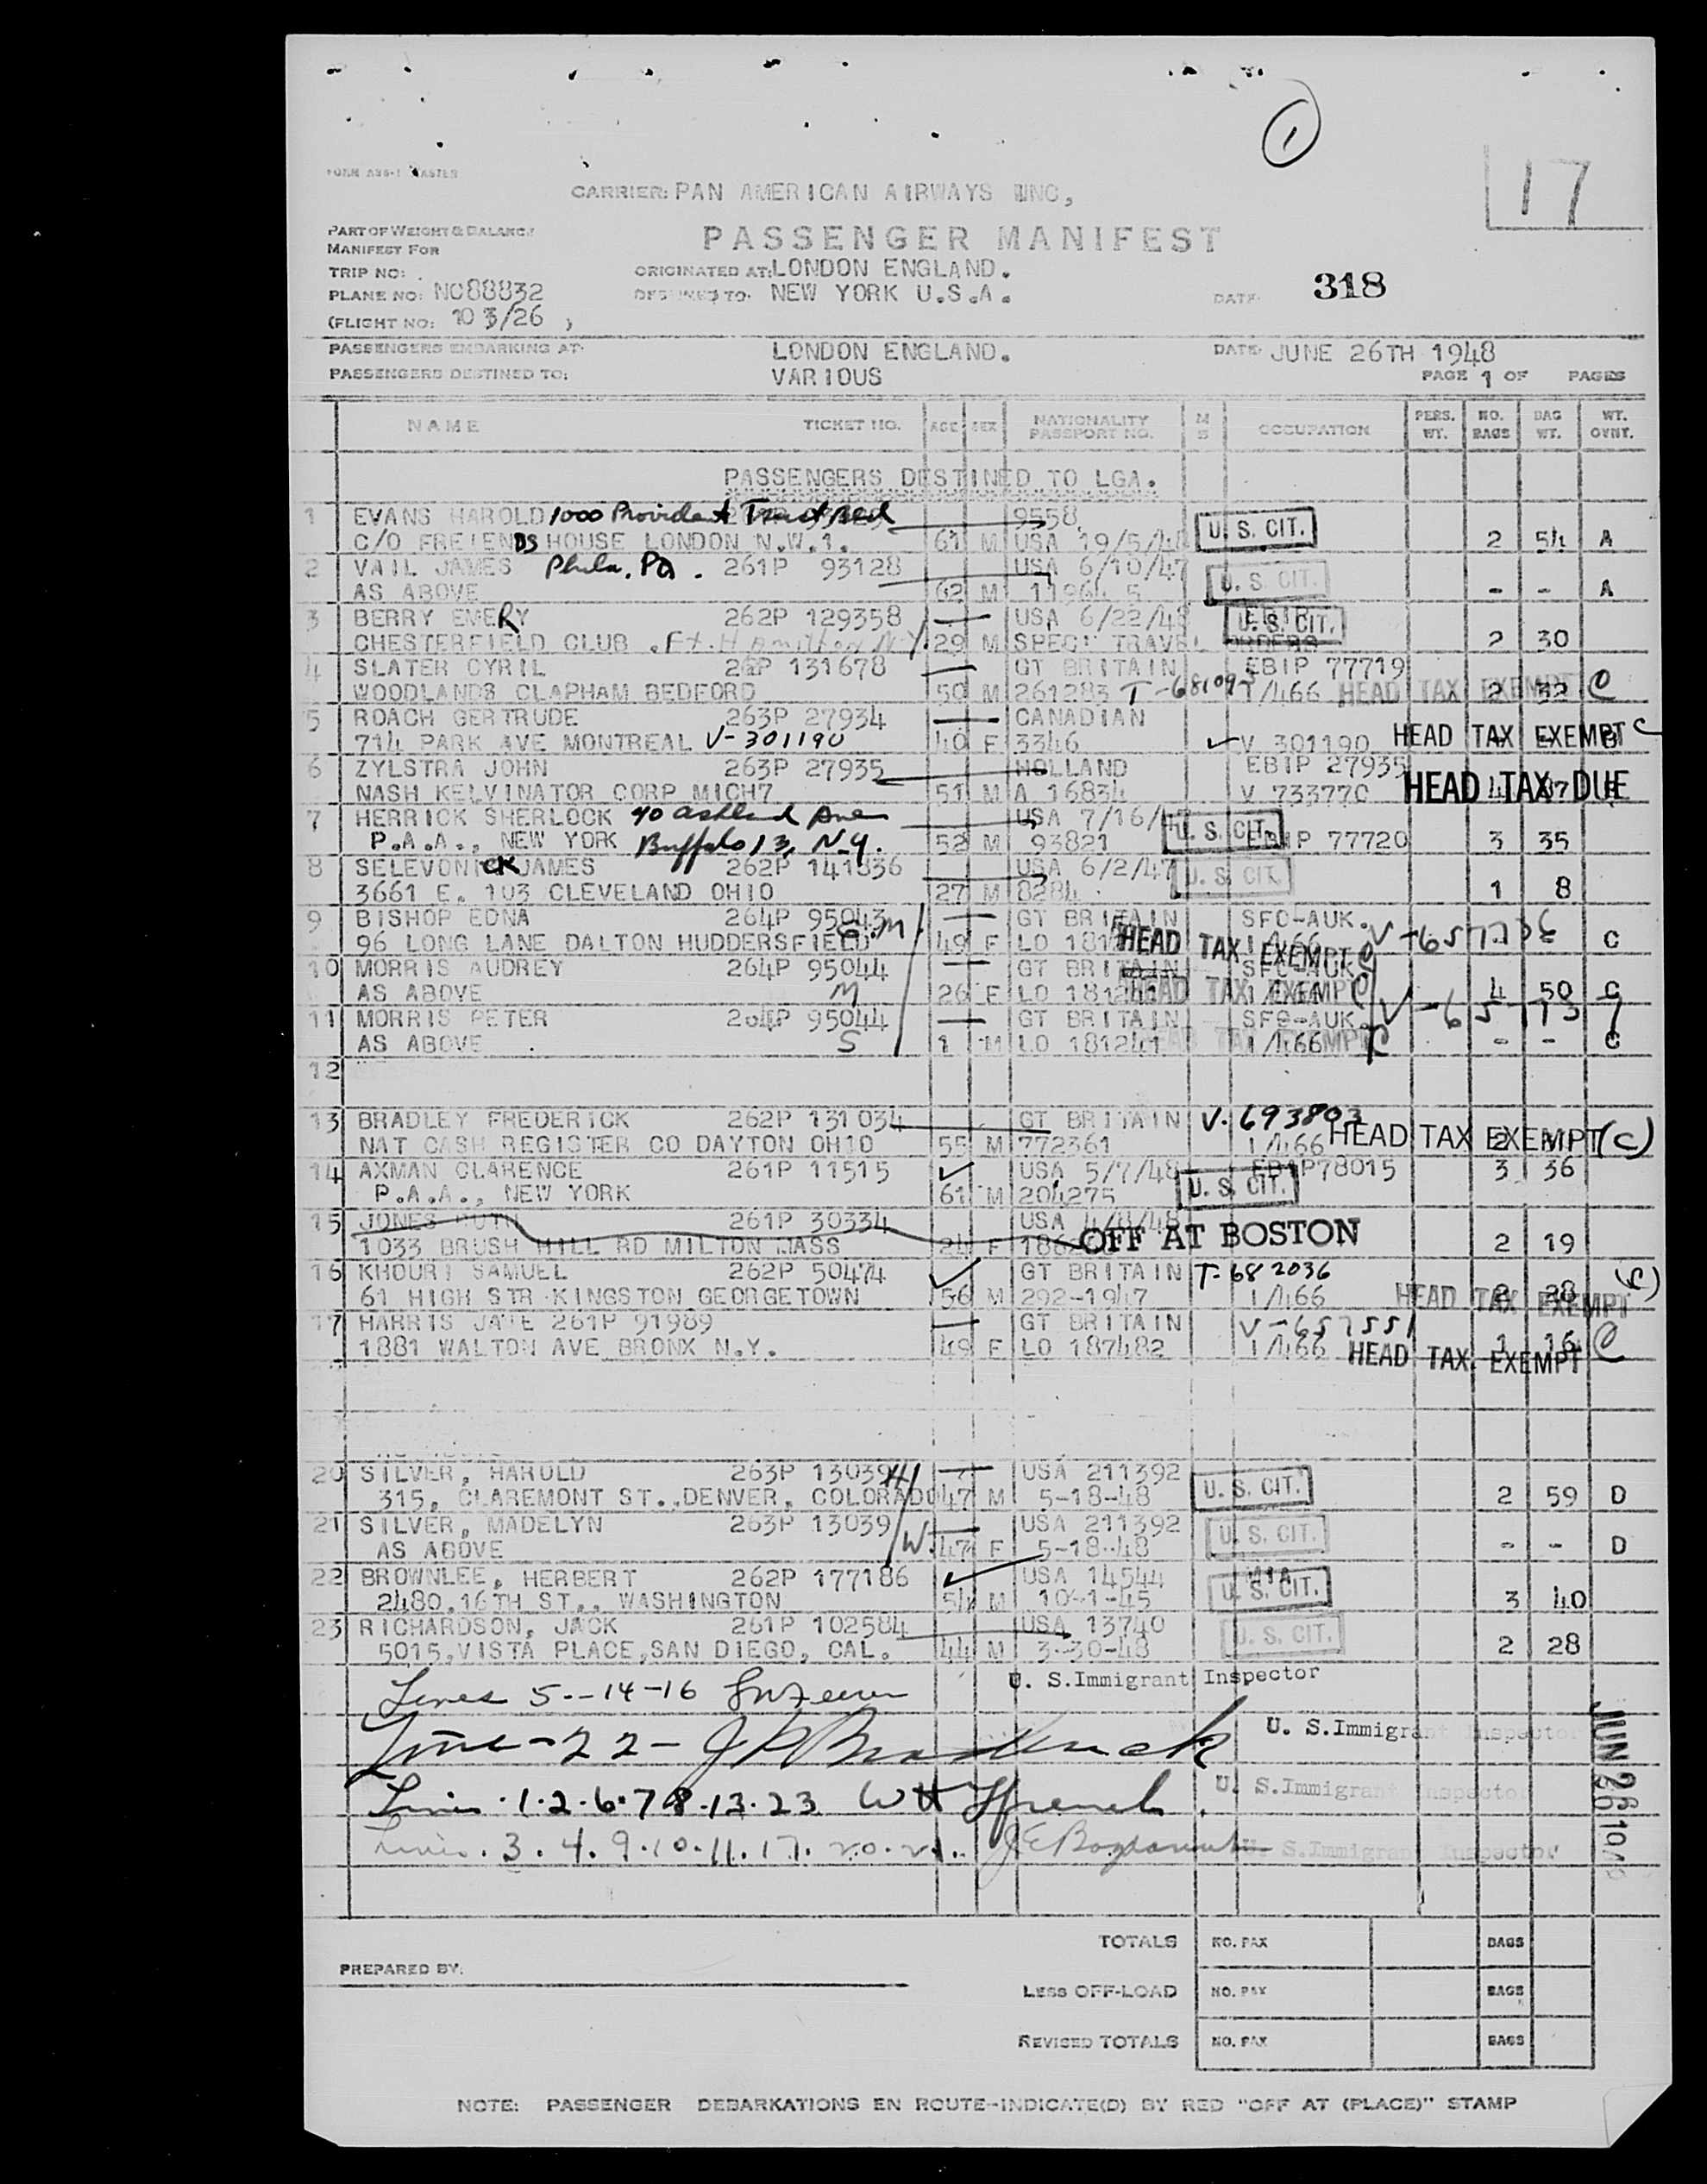 1
17
CARRIER: PAN AMERICAN AIRWAYS INC,
PART OF WEIGHT & BALANCE
MANIFEST FOR
PASSENGER MANIFEST
TRIP NO:
ORIGINATED AT: LONDON ENGLAND.
PLANE NO: NC88832
DESTINED TO: NEW YORK U.S.A.
DATE: 318
(FLIGHT NO: 103/26 )
PASSENGERS EMBARKING AT: LONDON ENGLAND. DATE: JUNE 26TH 1948
PASSENGERS DESTINED TO: VARIOUS PAGE 1 OF PAGES
NAME TICKET NO. AGE SEX NATIONALITY PASSPORT NO. M S OCCUPATION PERS. WT. NO. BAGS BAG WT. WT. OVNT.
PASSENGERS DESTINED TO LGA.
1 EVANS HAROLD 1000 Provident Trust Bld 9558 U. S. CIT.
C/O FREIENDS HOUSE LONDON N.W.1. 61 M USA 19/5/48 2 54 A
2 VAIL JAMES Phila. Pa. 261P 93128 USA 6/10/47 U. S. CIT.
AS ABOVE 62 M - - A
3 BERRY EMERY 262P 129358 USA 6/22/48 U. S. CIT.
CHESTERFIELD CLUB . Ft. Hamilton N.Y. 29 M SPECT TRAVEL ORDERS 2 30
4 SLATER CYRIL 262P 131678 GT BRITAIN EBIP 77719
WOODLANDS CLAPHAM BEDFORD 50 M 261283 1/466 HEAD TAX EXEMPT 2 32 C
5 ROACH GERTRUDE 263P 27934 CANADIAN
714 PARK AVE MONTREAL V-301190 40 F 3346 V 301190 HEAD TAX EXEMPT C
6 ZYLSTRA JOHN 263P 27935 HOLLAND EBIP 27935
NASH KELVINATOR CORP MICH7 51 M A 16834 V 733770 HEAD TAX DUE
7 HERRICK SHERLOCK 40 Ashland Ave USA 7/16/ U. S. CIT.
P.A.A., NEW YORK Buffalo 13, N.Y. 52 M 93821 EBIP 77720 3 35
8 SELEVONICK JAMES 262P 141836 USA 6/2/47 U. S. CIT.
3661 E. 103 CLEVELAND OHIO 27 M 8284 1 8
9 BISHOP EDNA 264P 95043 G.M. GT BRITAIN SFO-AUK.
96 LONG LANE DALTON HUDDERSFIELD 49 F LO HEAD TAX EXEMPT C
10 MORRIS AUDREY 264P 95044 GT BRITAIN SFO-AUK
AS ABOVE M 26 F LO 181241 HEAD TAX EXEMPT 4 50 C
11 MORRIS PETER 264P 95044 GT BRITAIN SFO-AUK.
AS ABOVE S 1 M LO 181241 1/466 HEAD TAX EXEMPT - - C
12
13 BRADLEY FREDERICK 262P 131034 GT BRITAIN V. 693803
NAT CASH REGISTER CO DAYTON OHIO 55 M 772361 1/466 HEAD TAX EXEMPT (C)
14 AXMAN CLARENCE 261P 11515 USA 5/7/48 EBIP78015 3 36
P.A.A., NEW YORK 61 M 204275 U. S. CIT.
15 JONES RUTH 261P 30334 USA 4/8/48
1033 BRUSH HILL RD MILTON MASS 24 F OFF AT BOSTON 2 19
16 KHOURI SAMUEL 262P 50474 GT BRITAIN T-682036
61 HIGH STR KINGSTON GEORGETOWN 56 M 292-1947 1/466 HEAD TAX EXEMPT 2 28 (C)
17 HARRIS JATE 261P 91989 GT BRITAIN V-657551
1881 WALTON AVE BRONX N.Y. 49 F LO 187482 1/466 HEAD TAX EXEMPT 1 16 C
20 SILVER, HAROLD 263P 13039 H USA 211392 U. S. CIT.
315, CLAREMONT ST., DENVER, COLORADO 47 M 5-18-48 2 59 D
21 SILVER, MADELYN 263P 13039 USA 211392 U. S. CIT.
AS ABOVE W. 47 F 5-18-48 - - D
22 BROWNLEE, HERBERT 262P 177186 USA 14544 U. S. CIT.
2480, 16TH ST., WASHINGTON 54 M 10-1-45 3 40
23 RICHARDSON, JACK 261P 102584 USA 13740 U. S. CIT.
5015, VISTA PLACE, SAN DIEGO, CAL. 44 M 3-30-48 2 28
Lines 5--14-16 U. S.Immigrant Inspector
Line-22- U. S.Immigrant Inspector
Lines 1.2.6.7.8.13.23 W H U. S.Immigrant Inspector
Lines. 3. 4. 9. 10. 11. 17. 20. 21. U. S.Immigrant Inspector
JUN 26 1948
TOTALS NO. PAX BAGS
PREPARED BY:
LESS OFF-LOAD NO. PAX BAGS
REVISED TOTALS NO. PAX BAGS
NOTE: PASSENGER DEBARKATIONS EN ROUTE-INDICATE(D) BY RED "OFF AT (PLACE)" STAMP